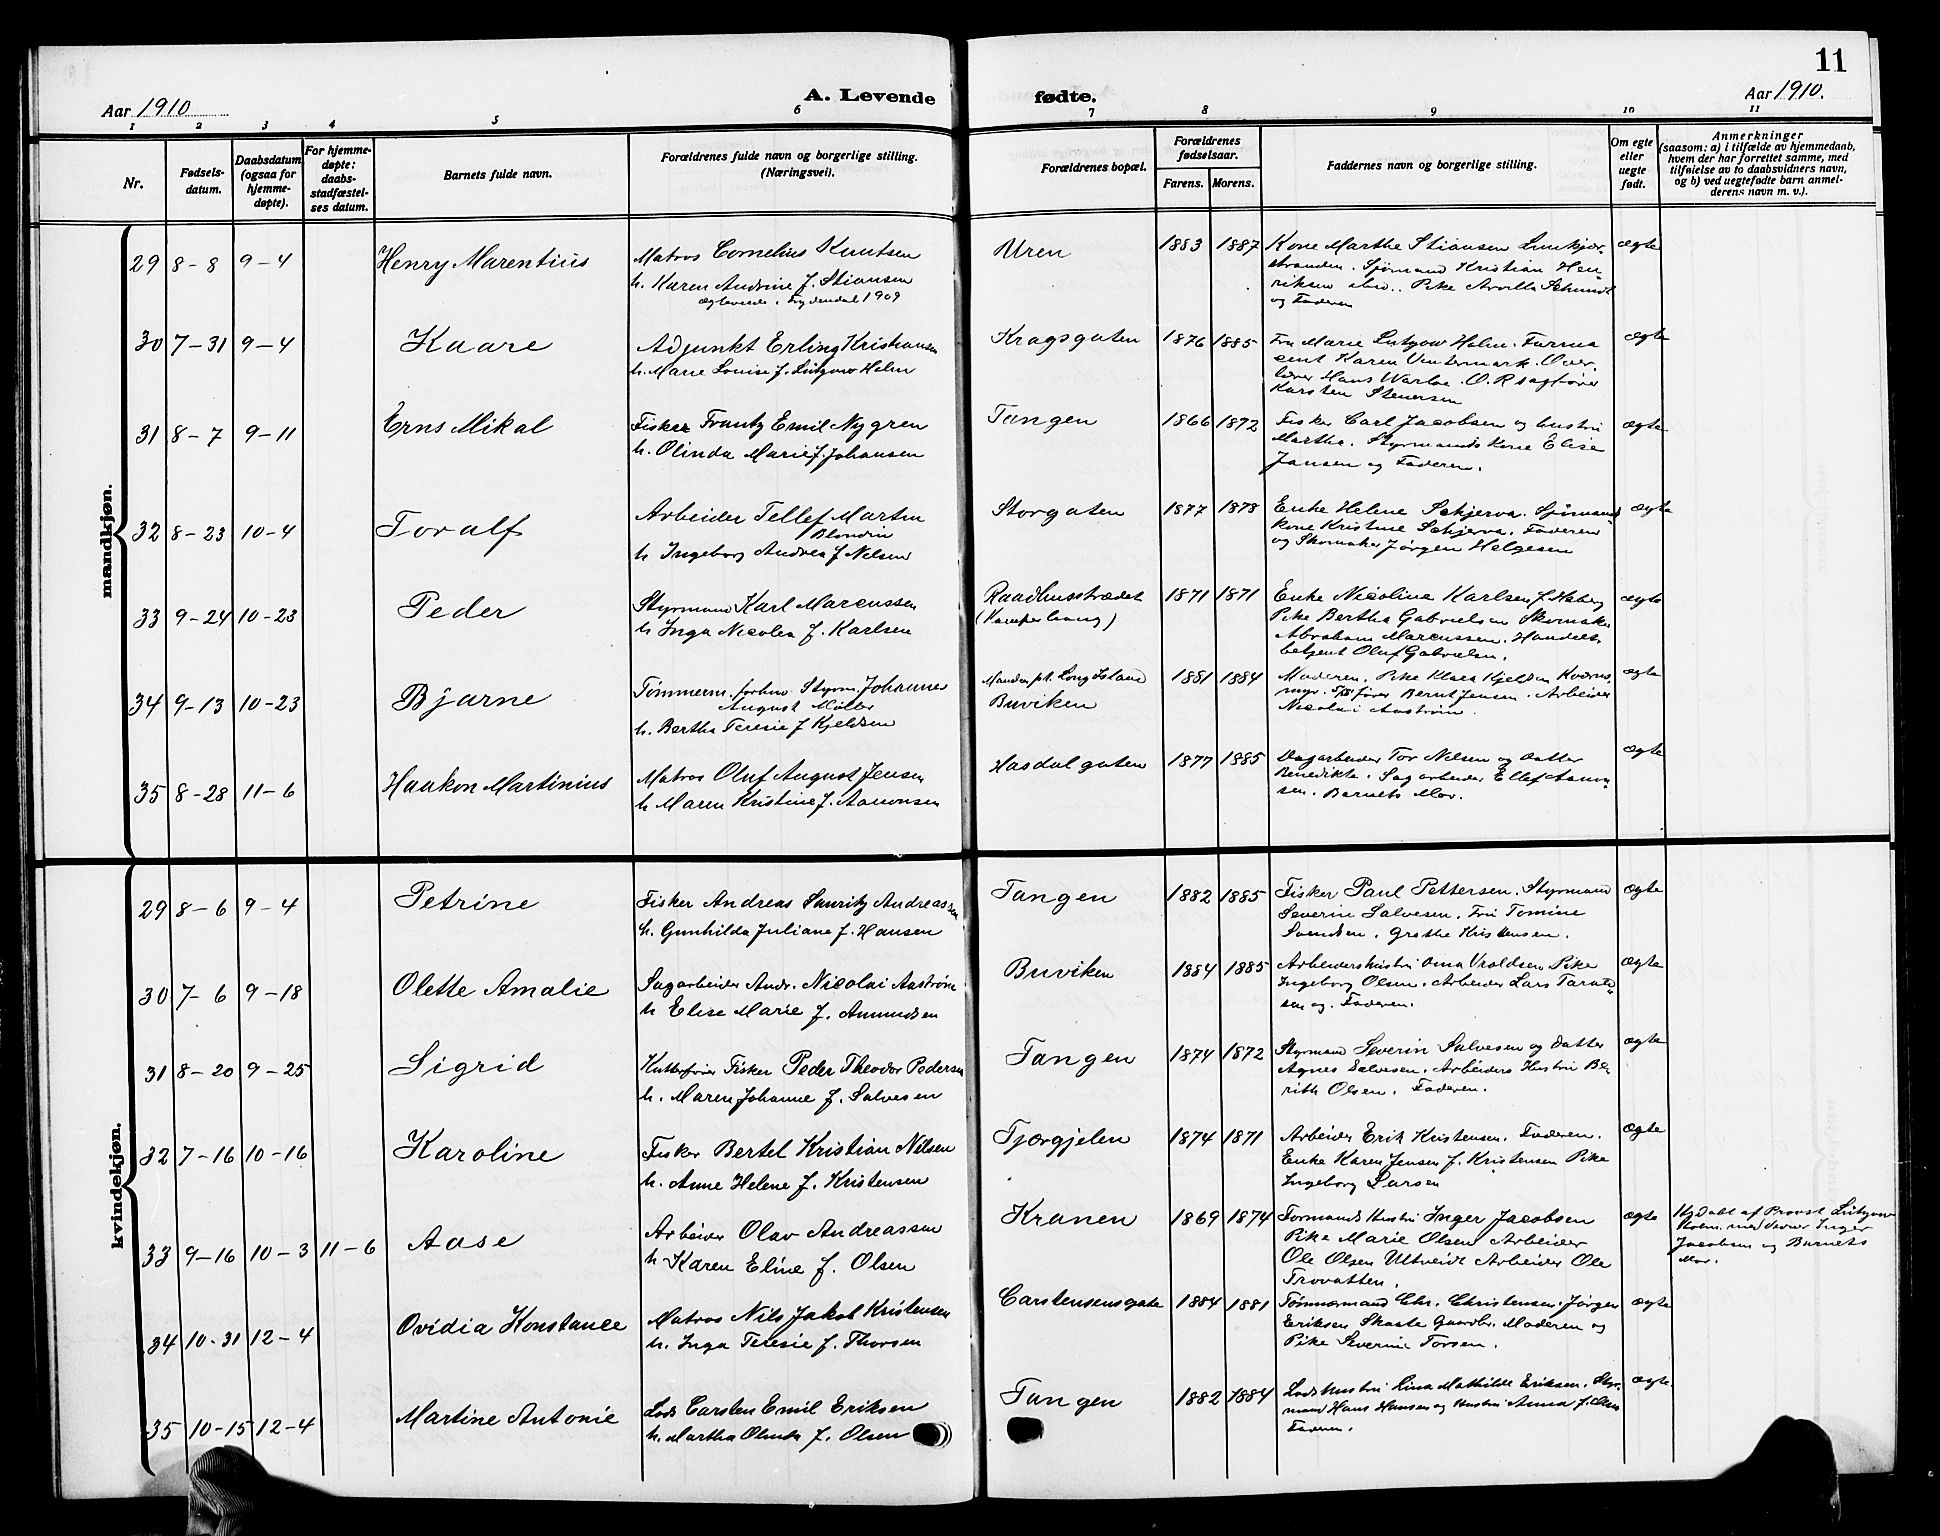 11
Aar 1910
A. Levende
fødte.
Aar 1910.
1 2 3 4 5 6 7 8 9 10 11
Nr.
Fødsels-
datum.
Daabsdatum
(ogsaa for
hjemme-
døpte).
For hjemme-
døpte:
daabs-
stadfæstel-
ses datum.
Barnets fulde navn.
Forældrenes fulde navn og borgerlige stilling.
(Næringsvei).
Forældrenes bopæl.
Forældrenes
fødselsaar.
Farens. Morens.
Faddernes navn og borgerlige stilling.
Om egte
eller
uegte
født.
Anmerkninger
(saasom: a) i tilfælde av hjemmedaab,
hvem der har forrettet samme, med
tilføielse av to daabsvidners navn,
og b) ved uegtefødte barn anmel-
derens navn m. v.).
mandkjøn.
29 8-8 9-4 Henry Marentius
Matros Cornelius Knutsen
h. Karen Andrine f. Stiansen
1909
Uren 1883 1887
Kone Marthe Stiansen Lunkjær-
stranden. Sjømand Kristian Hen-
riksen ibid. Pike Arvilla Schmidt
og Faderen
ægte
30 7-31 9-4 Kaare
Adjunkt Erling Kristiansen
h. Marie Louise f. Lütgow Holm
Kragsgaten 1876 1885
Fru Marie Lutgow Holm. Farma
ceut Karen Ventermark. Over
lærer Hans Warloe. O.R sagfører
Karsten Stenersen
ægte
31 8-7 9-11 Erns Mikal
Fisker Frantz Emil Nygren
h. Olinda Marie f. Johansen
Tangen 1866 1872
Fisker Carl Jacobsen og hustru
Martha. Styrmands Kone Elise
Jansen og Faderen.
ægte
32 8-23 10-4 Toralf
Arbeider Tellef Martin
Blondin
h Ingeborg Andrea f Nilsen
Storgaten 1877 1878
Enke Helene Schjerva. Sjømand
kone Kristine Schjerva. Faderen
og Skomaker Jørgen Helgesen
ægte
33 9-24 10-23 Peder
Styrmand Karl Marcussen
h Inga Nicolea f. Karlsen
Raadhusstrædet 1871 1871
Enke Nicoline Karlsen f. Hoberg
Pike Bertha Gabrielsen Skomaker
Abraham Marcussen. Handels
betjent Oluf Gabrielsen.
ægte
34 9-13 10-23 Bjarne
Tømmerm. forhen Styrm Johannes
August Møller
h. Bertha Teresie f Kjeldsen
Manden pt. Long Island
Buviken 1881 1884
Moderen. Pike Klara Kjeldsen Kverns
myr. Bernt Jensen. Arbeider
Nicolai Aastrøm.
ægte
35 8-28 11-6 Haakon Martinius
Matros Oluf August Jensen
h Maren Kristine f. Aanonsen
Hasdalgaten 1877 1885
Dagarbeider Tor Nilsen og datter
Benedikte. Sagarbeider Ellef Aanon
sen. Barnets Mor.
ægte
kvindekjøn.
29 8-6 9-4 Petrine
Fisker Andreas Lauritz Andreassen
h. Gunhilda Juliane f. Hansen
Tangen 1882 1885
Fisker Paul Pettersen. Styrmand
Severin Salvesen. Fru Tomine
Svendsen. Grethe Kristensen.
ægte
30 7-6 9-18 Olette Amalie
Sagarbeider Andr. Nicolai Aastrøm
h Elise Marie f. Amundsen
Buviken 1884 1885
Arbeiderhustru Oma Vraldsen Pike
Ingeborg Olsen. Arbeider Lars Tarald
sen og Faderen.
ægte
31 8-20 9-25 Sigrid
Kutterfører Fisker Peder Theodor Pedersen
h. Maren Johanne f. Salvesen
Tangen 1874 1872
Styrmand Severin Salvesen og datter
Agnes Salvesen. Arbeiders Hustru Be
rith Olsen. Faderen.
ægte
32 7-16 10-16 Karoline
Fisker Bertel Kristian Nilsen
h. Anne Helene f. Kristensen
Tjærgjelen 1874 1871
Arbeider Erik Kristensen. Faderen.
Enke Karen Jensen f. Kristensen Pike
Ingeborg Larsen
ægte
33 9-16 10-3 11-6 Aase
Arbeider Olav Andreassen
h. Karen Eline f. Olsen
Kranen 1869 1874
Formands Hustru Inger Jacobsen
Pike Marie Olsen Arbeider
Ole Olsen Utveidt Arbeider Ole
Trovatten.
ægte
Hjdøbt af Provst Lütgow
Holm. med vidner Inger
Jacobsen og Barnets
Mor.
34 10-31 12-4 Ovidia Konstance
Matros Nils Jakob Kristensen
h. Inga Teresie f. Thorsen
Carstensensgate 1884 1881
Tømmermand Chr. Christensen. Jørgen
Eriksen Skaste Gaardbr. Moderen og
Pike Severine Torsen.
ægte
35 10-15 12-4 Martine Antonie
Lods Carsten Emil Eriksen
h. Martha Olinda f. Olsen
Tangen 1882 1884
Lodshustru Lina Mathilde Eriksen. Styr-
mand Hans Hansen og Hustru Anna f. Olsen
Faderen.
ægte.